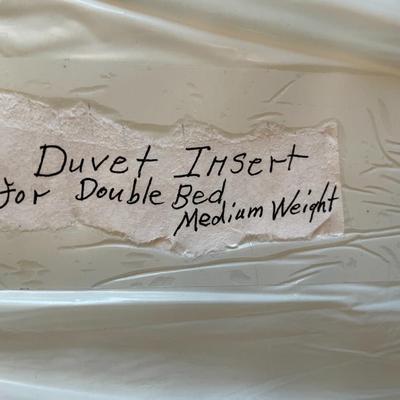 Duvet Insert
for Double Bed
Medium Weight